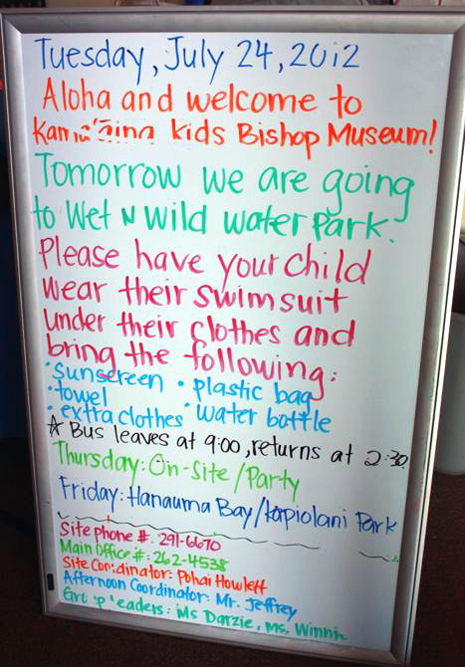 Tuesday, July 24, 2012
Aloha and welcome to
Kama'aina kids Bishop Museum!
Tomorrow we are going
to Wet N wild water Park.
Please have your child
wear their swimsuit
under their clothes and
bring the following:
•sunscreen • plastic bag
•towel
•extra clothes • water bottle
☆ Bus leaves at 9:00, returns at 2:30
Thursday: On-Site/Party
Friday: Hanauma Bay/Kapiolani Park
Site phone #: 291-6670
Main Office #: 262-4538
Site Coordinator: Pohai Howlett
Afternoon Coordinator: Mr. Jeffrey
Ms Darzie, Ms. Winnie